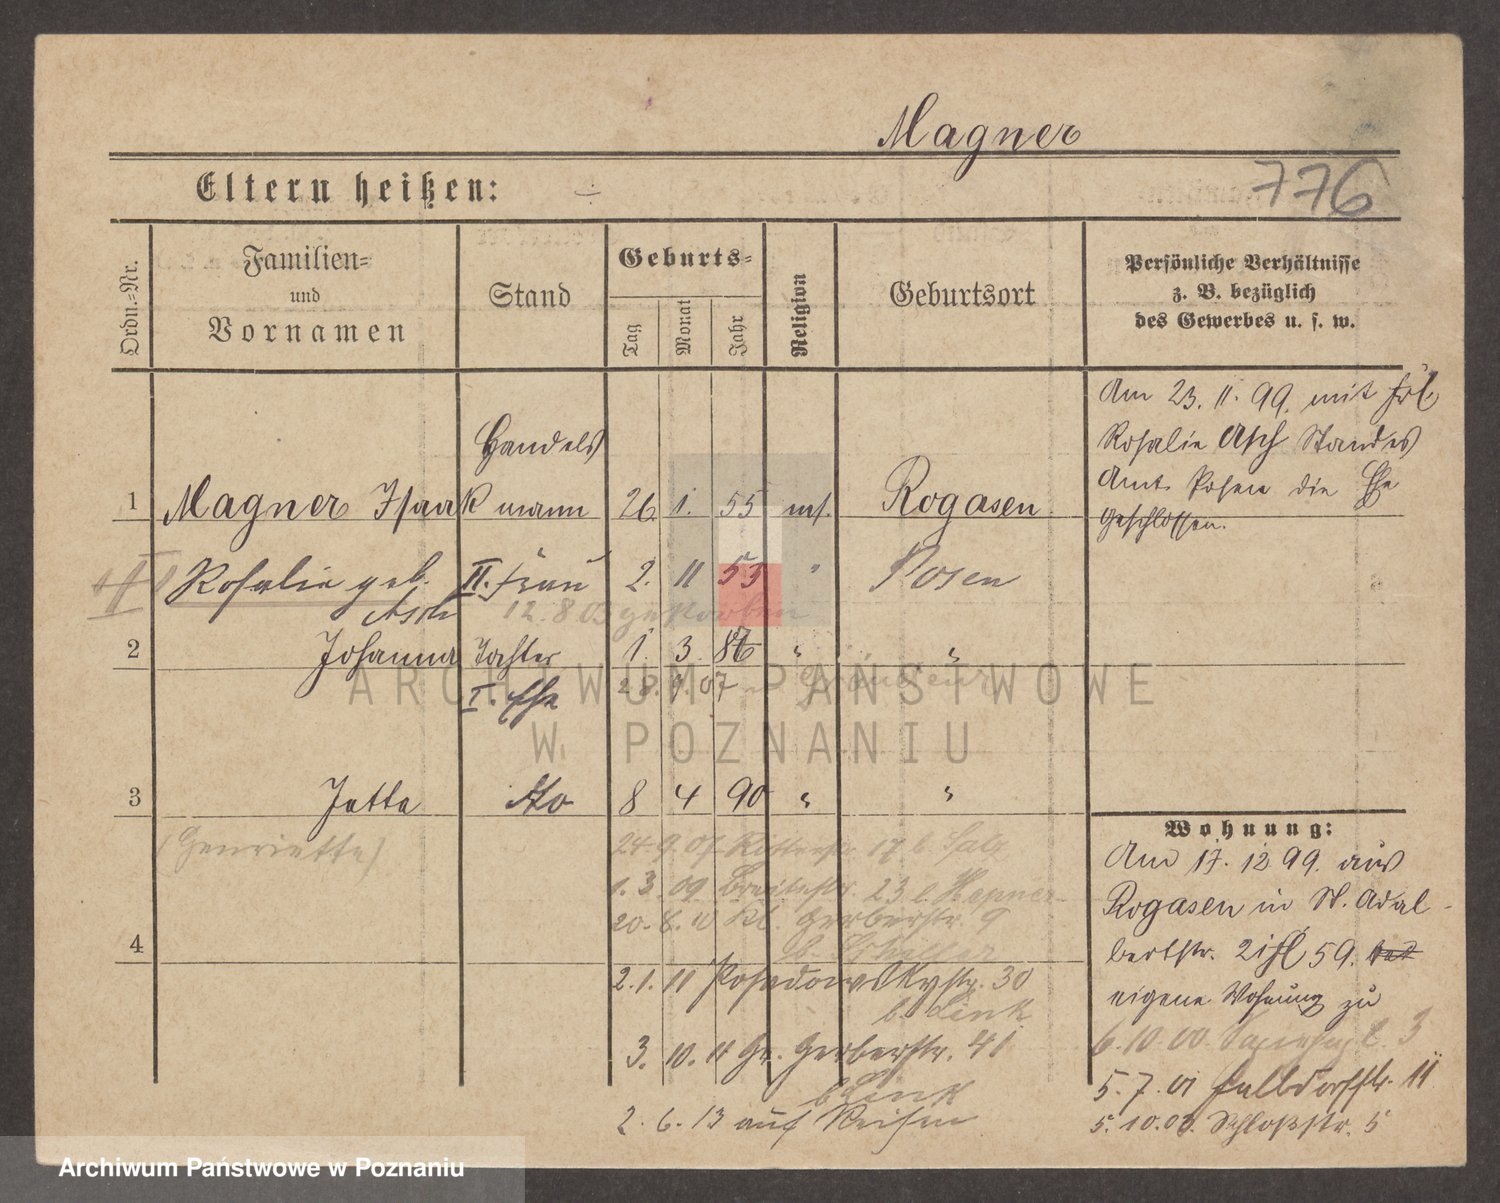 Magner
776
Eltern heißen: ÷
Ordn.=Nr.
Familien=
und
Vornamen
Stand
Geburts=
Tag
Monat
Jahr
Religion
Geburtsort
Persönliche Verhältnisse
z. B. bezüglich
des Gewerbes u. s. w.
1 Magner Isaak Handels
mann 26 1. 55 mos. Rogasen
Am 23. 11. 99. mit Frl
Rosalie Asch Standes
Amt Posen die Ehe
geschlossen.
Rosalie geb.
Asch II. Frau 2. 11 53 " Posen
12.8.03 gestorben
2 Johanna Tochter 1. 3. 86 " "
I. Ehe 28. 9. 07
3 Jette dto 8 4 90 " "
(Henriette)
24 9 07 Ritterstr 17 b. Salz
1. 3. 09 Breitestr. 23 b Hepner
20. 8. 10 Kl. Gerberstr. 9
4
2. 1. 11 Posadowskystr. 30
b. Link
3. 10. 11 Gr. Gerberstr. 41
b Link
2. 6. 13 auf Reisen
Wohnung:
Am 17. 12 99. aus
Rogasen in St. Adal-
bertstr. 2 59.
eigene Wohnung zu
6. 10. 00. 3
5. 7. 01 Halbdorfstr. 11
5. 10. 03. Schloßstr. 5
ARCHIWUM PAŃSTWOWE
W POZNANIU
Archiwum Państwowe w Poznaniu